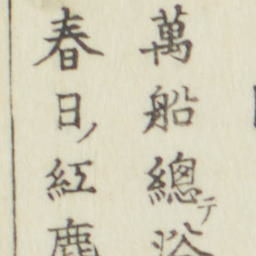 萬船總テ
春日ノ紅